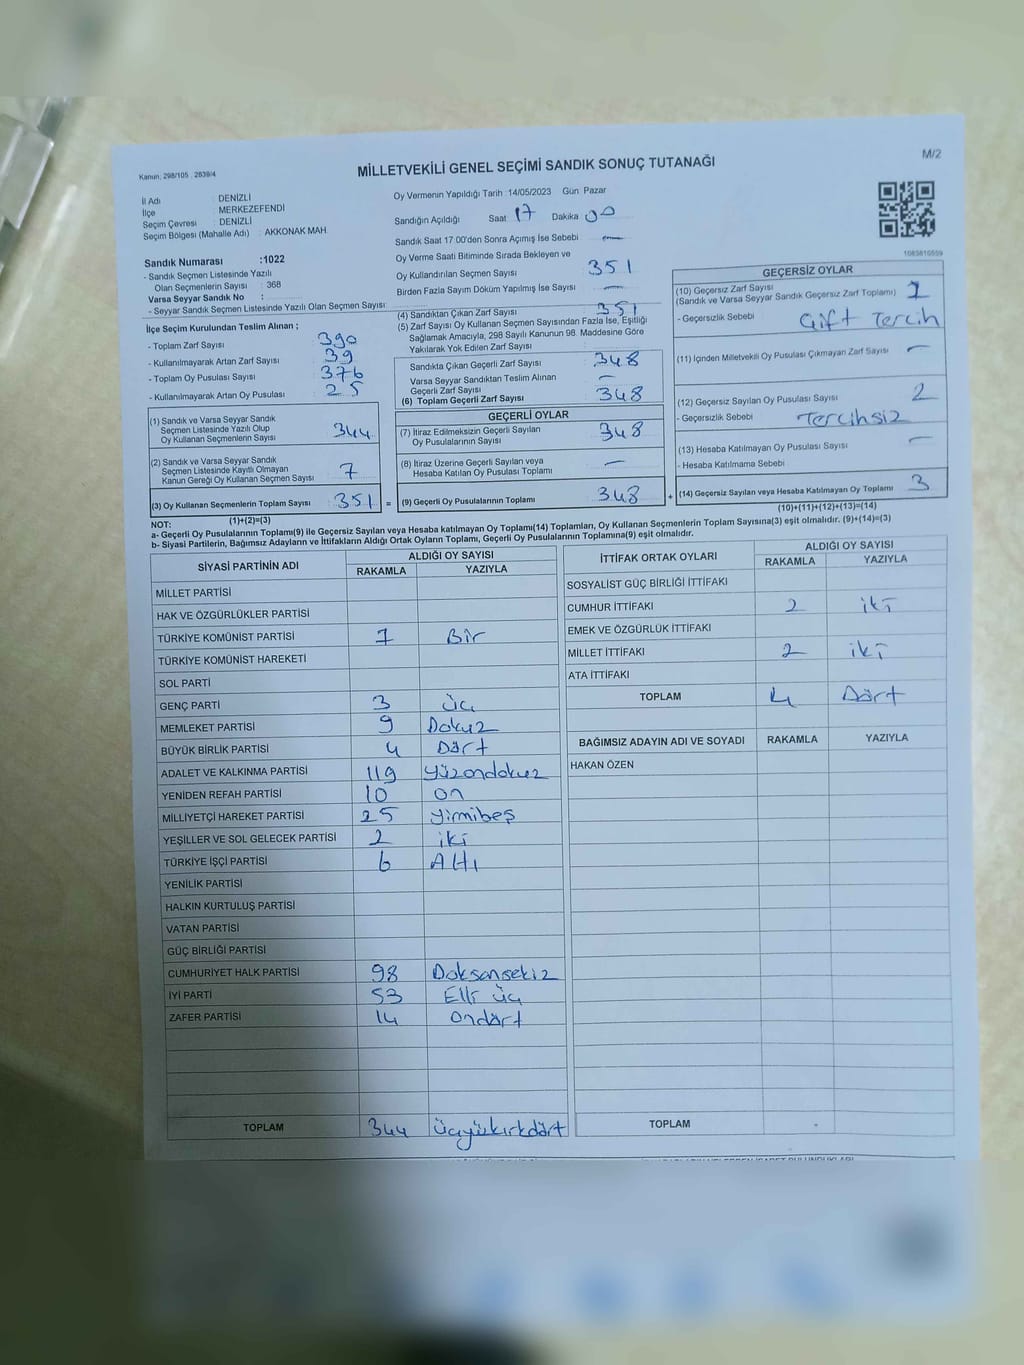 Kanun: 298/105 . 2839/4
MİLLETVEKİLİ GENEL SEÇİMİ SANDIK SONUÇ TUTANAĞI
M/2
İl Adı : DENİZLİ
İlçe : MERKEZEFENDİ
Seçim Çevresi : DENİZLİ
Seçim Bölgesi (Mahalle Adı) : AKKONAK MAH.
Sandık Numarası :1022
- Sandık Seçmen Listesinde Yazılı
Olan Seçmenlerin Sayısı : 368
Varsa Seyyar Sandık No :
- Seyyar Sandık Seçmen Listesinde Yazılı Olan Seçmen Sayısı:
İlçe Seçim Kurulundan Teslim Alınan ;
- Toplam Zarf Sayısı 390
- Kullanılmayarak Artan Zarf Sayısı 39
- Toplam Oy Pusulası Sayısı 376
- Kullanılmayarak Artan Oy Pusulası 25
(1) Sandık ve Varsa Seyyar Sandık
Seçmen Listesinde Yazılı Olup
Oy Kullanan Seçmenlerin Sayısı 344
(2) Sandık ve Varsa Seyyar Sandık
Seçmen Listesinde Kayıtlı Olmayan
Kanun Gereği Oy Kullanan Seçmen Sayısı 7
(3) Oy Kullanan Seçmenlerin Toplam Sayısı 351 =
(1)+(2)=(3)
Oy Vermenin Yapıldığı Tarih :14/05/2023 Gün Pazar
Sandığın Açıldığı Saat 17 Dakika 00
Sandık Saat 17:00'den Sonra Açımış İse Sebebi —
Oy Verme Saati Bitiminde Sırada Bekleyen ve
Oy Kullandırılan Seçmen Sayısı 351
Birden Fazla Sayım Döküm Yapılmış İse Sayısı —
(4) Sandıktan Çıkan Zarf Sayısı 351
(5) Zarf Sayısı Oy Kullanan Seçmen Sayısından Fazla İse, Eşitliği
Sağlamak Amacıyla, 298 Sayılı Kanunun 98. Maddesine Göre
Yakılarak Yok Edilen Zarf Sayısı
Sandıkta Çıkan Geçerli Zarf Sayısı 348
Varsa Seyyar Sandıktan Teslim Alınan
Geçerli Zarf Sayısı —
(6) Toplam Geçerli Zarf Sayısı 348
GEÇERLİ OYLAR
(7) İtiraz Edilmeksizin Geçerli Sayılan
Oy Pusulalarının Sayısı 348
(8) İtiraz Üzerine Geçerli Sayılan veya
Hesaba Katılan Oy Pusulası Toplamı —
(9) Geçerli Oy Pusulalarının Toplamı 348 +
1083810559
GEÇERSİZ OYLAR
(10) Geçersiz Zarf Sayısı 1
(Sandık ve Varsa Seyyar Sandık Geçersiz Zarf Toplamı)
- Geçersizlik Sebebi Çift Tercih
(11) İçinden Milletvekili Oy Pusulası Çıkmayan Zarf Sayısı —
(12) Geçersiz Sayılan Oy Pusulası Sayısı 2
- Geçersizlik Sebebi Tercihsiz
(13) Hesaba Katılmayan Oy Pusulası Sayısı —
- Hesaba Katılmama Sebebi
(14) Geçersiz Sayılan veya Hesaba Katılmayan Oy Toplamı 3
(10)+(11)+(12)+(13)=(14)
NOT:
a- Geçerli Oy Pusulalarının Toplamı(9) ile Geçersiz Sayılan veya Hesaba katılmayan Oy Toplamı(14) Toplamları, Oy Kullanan Seçmenlerin Toplam Sayısına(3) eşit olmalıdır. (9)+(14)=(3)
b- Siyasi Partilerin, Bağımsız Adayların ve İttifakların Aldığı Ortak Oyların Toplamı, Geçerli Oy Pusulalarının Toplamına(9) eşit olmalıdır.
SİYASİ PARTİNİN ADI ALDIĞI OY SAYISI
RAKAMLA YAZIYLA
MİLLET PARTİSİ
HAK VE ÖZGÜRLÜKLER PARTİSİ
TÜRKİYE KOMÜNİST PARTİSİ 1 Bir
TÜRKİYE KOMÜNİST HAREKETİ
SOL PARTİ
GENÇ PARTİ 3 üç
MEMLEKET PARTİSİ 9 Dokuz
BÜYÜK BİRLİK PARTİSİ 4 Dört
ADALET VE KALKINMA PARTİSİ 119 yüzondokuz
YENİDEN REFAH PARTİSİ 10 on
MİLLİYETÇİ HAREKET PARTİSİ 25 yirmibeş
YEŞİLLER VE SOL GELECEK PARTİSİ 2 iki
TÜRKİYE İŞÇİ PARTİSİ 6 Altı
YENİLİK PARTİSİ
HALKIN KURTULUŞ PARTİSİ
VATAN PARTİSİ
GÜÇ BİRLİĞİ PARTİSİ
CUMHURİYET HALK PARTİSİ 98 Doksansekiz
İYİ PARTİ 53 Elli üç
ZAFER PARTİSİ 14 ondört
TOPLAM 344 üçyüzkırkdört
İTTİFAK ORTAK OYLARI ALDIĞI OY SAYISI
RAKAMLA YAZIYLA
SOSYALİST GÜÇ BİRLİĞİ İTTİFAKI
CUMHUR İTTİFAKI 2 iki
EMEK VE ÖZGÜRLÜK İTTİFAKI
MİLLET İTTİFAKI 2 iki
ATA İTTİFAKI
TOPLAM 4 Dört
BAĞIMSIZ ADAYIN ADI VE SOYADI RAKAMLA YAZIYLA
HAKAN ÖZEN
TOPLAM